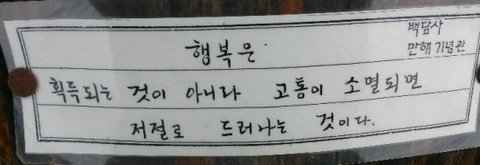 백담사
만해 기념관
행복은
획득되는 것이 아니라 고통이 소멸되면
저절로 드러나는 것이다.